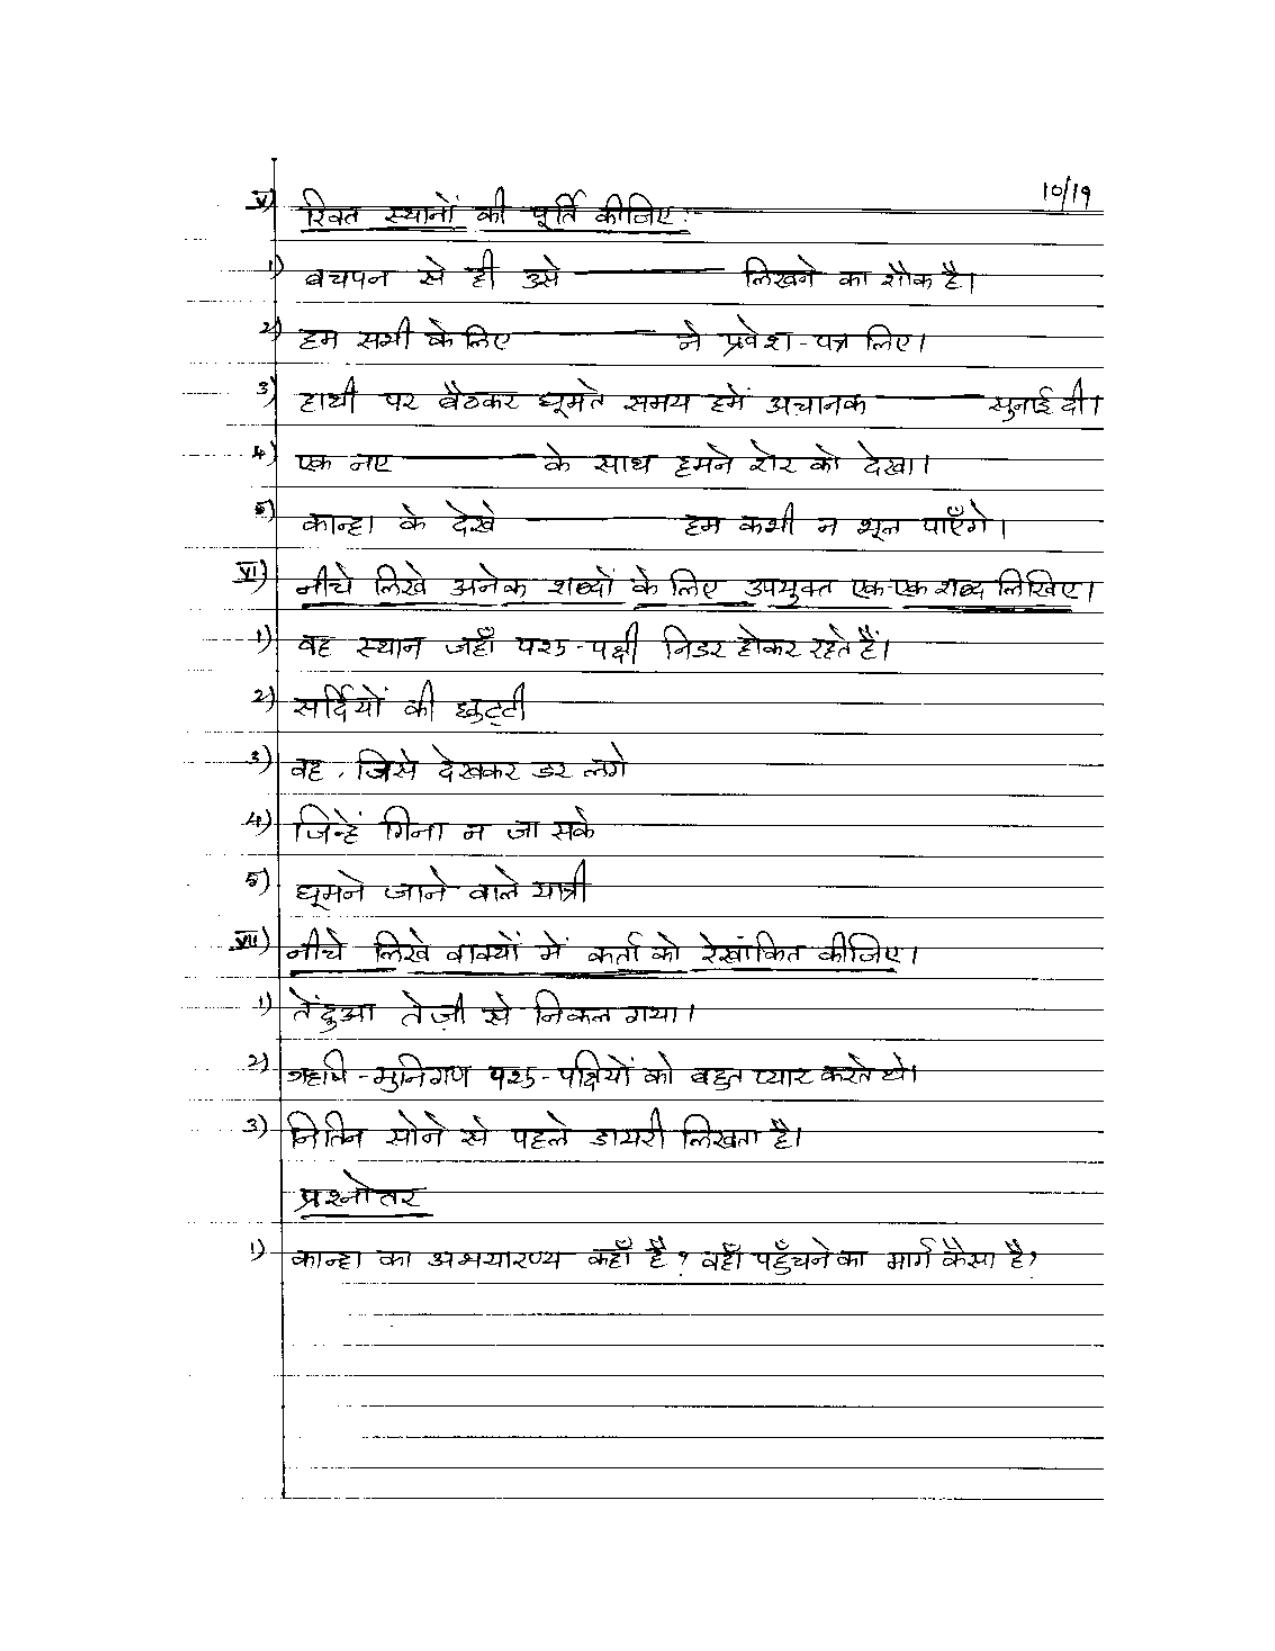 10/19
V) रिक्त स्थानों की पूर्ति कीजिए :-
1) बचपन से ही उसे ———— लिखने का शौक है।
2) हम सभी के लिए ———— ने प्रवेश-पत्र लिए।
3) हाथी पर बैठकर घूमते समय हमें अचानक ———— सुनाई दी।
4) एक नए ———— के साथ हमने शेर को देखा।
5) कान्हा के देखे ———— हम कभी न भूल पाएँगे।
VI) नीचे लिखे अनेक शब्दों के लिए उपयुक्त एक-एक शब्द लिखिए।
1) वह स्थान जहाँ पशु-पक्षी निडर होकर रहते हैं।
2) सर्दियों की छुट्टी
3) वह, जिसे देखकर डर लगे
4) जिन्हें गिना न जा सके
5) घूमने जाने वाले यात्री
VII) नीचे लिखे वाक्यों में कर्ता को रेखांकित कीजिए।
1) तेंदुआ तेज़ी से निकल गया।
2) ऋषि-मुनिगण पशु-पक्षियों को बहुत प्यार करते थे।
3) नितिन सोने से पहले डायरी लिखता है।
प्रश्नोतर
1) कान्हा का अभयारण्य कहाँ है? वहाँ पहुँचने का मार्ग कैसा है?